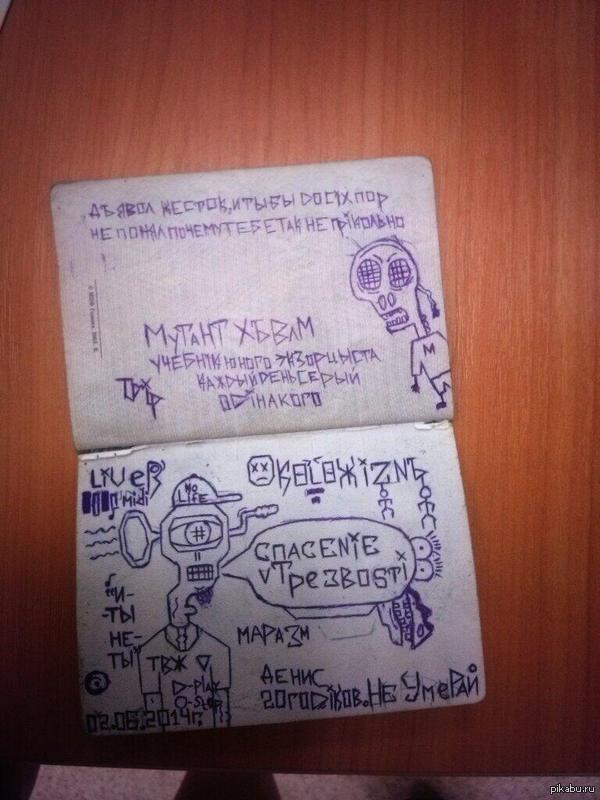 ДЬЯВОЛ ЖЕСТОК,ИТЫБЫ DO СIХ ПОР
НЕ ПОНЯЛ ПОЧЕМУ ТЕБЕ ТАК НЕ ПРIКОЛЬНО
МУТАНТ ХЬВЛМ
УЧЕБНIК ЮНОГО ЭКЗОРЦЫСТА
КАЖДЫЙ ДЕНЬ СЕРЫЙ
ОДIНАКОГО
M
LIVER
midi
NO
LIFE
ОКОLОЖИZNЬ
СПАСЕNIЕ
v ТРЕЗВОSТI
"И-
-ТЫ
НЕ-
ТЫ"
МАРАЗМ
ТВЖ
D-PLAY
O-STOP
ДЕНИС.
20ГОDIКОВ.НЕ УМЕРАЙ
02.06.2014г.
pikabu.ru